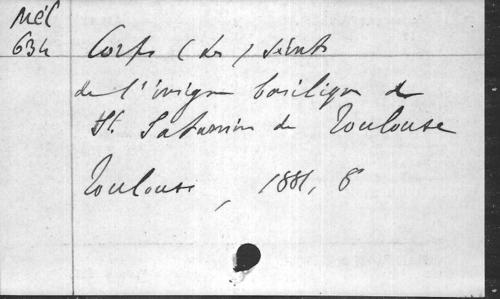 Mél
634
Corps (des) Saints
de l'insigne basilique de
St. Saturnin de Toulouse
Toulouse, 1881, 8°